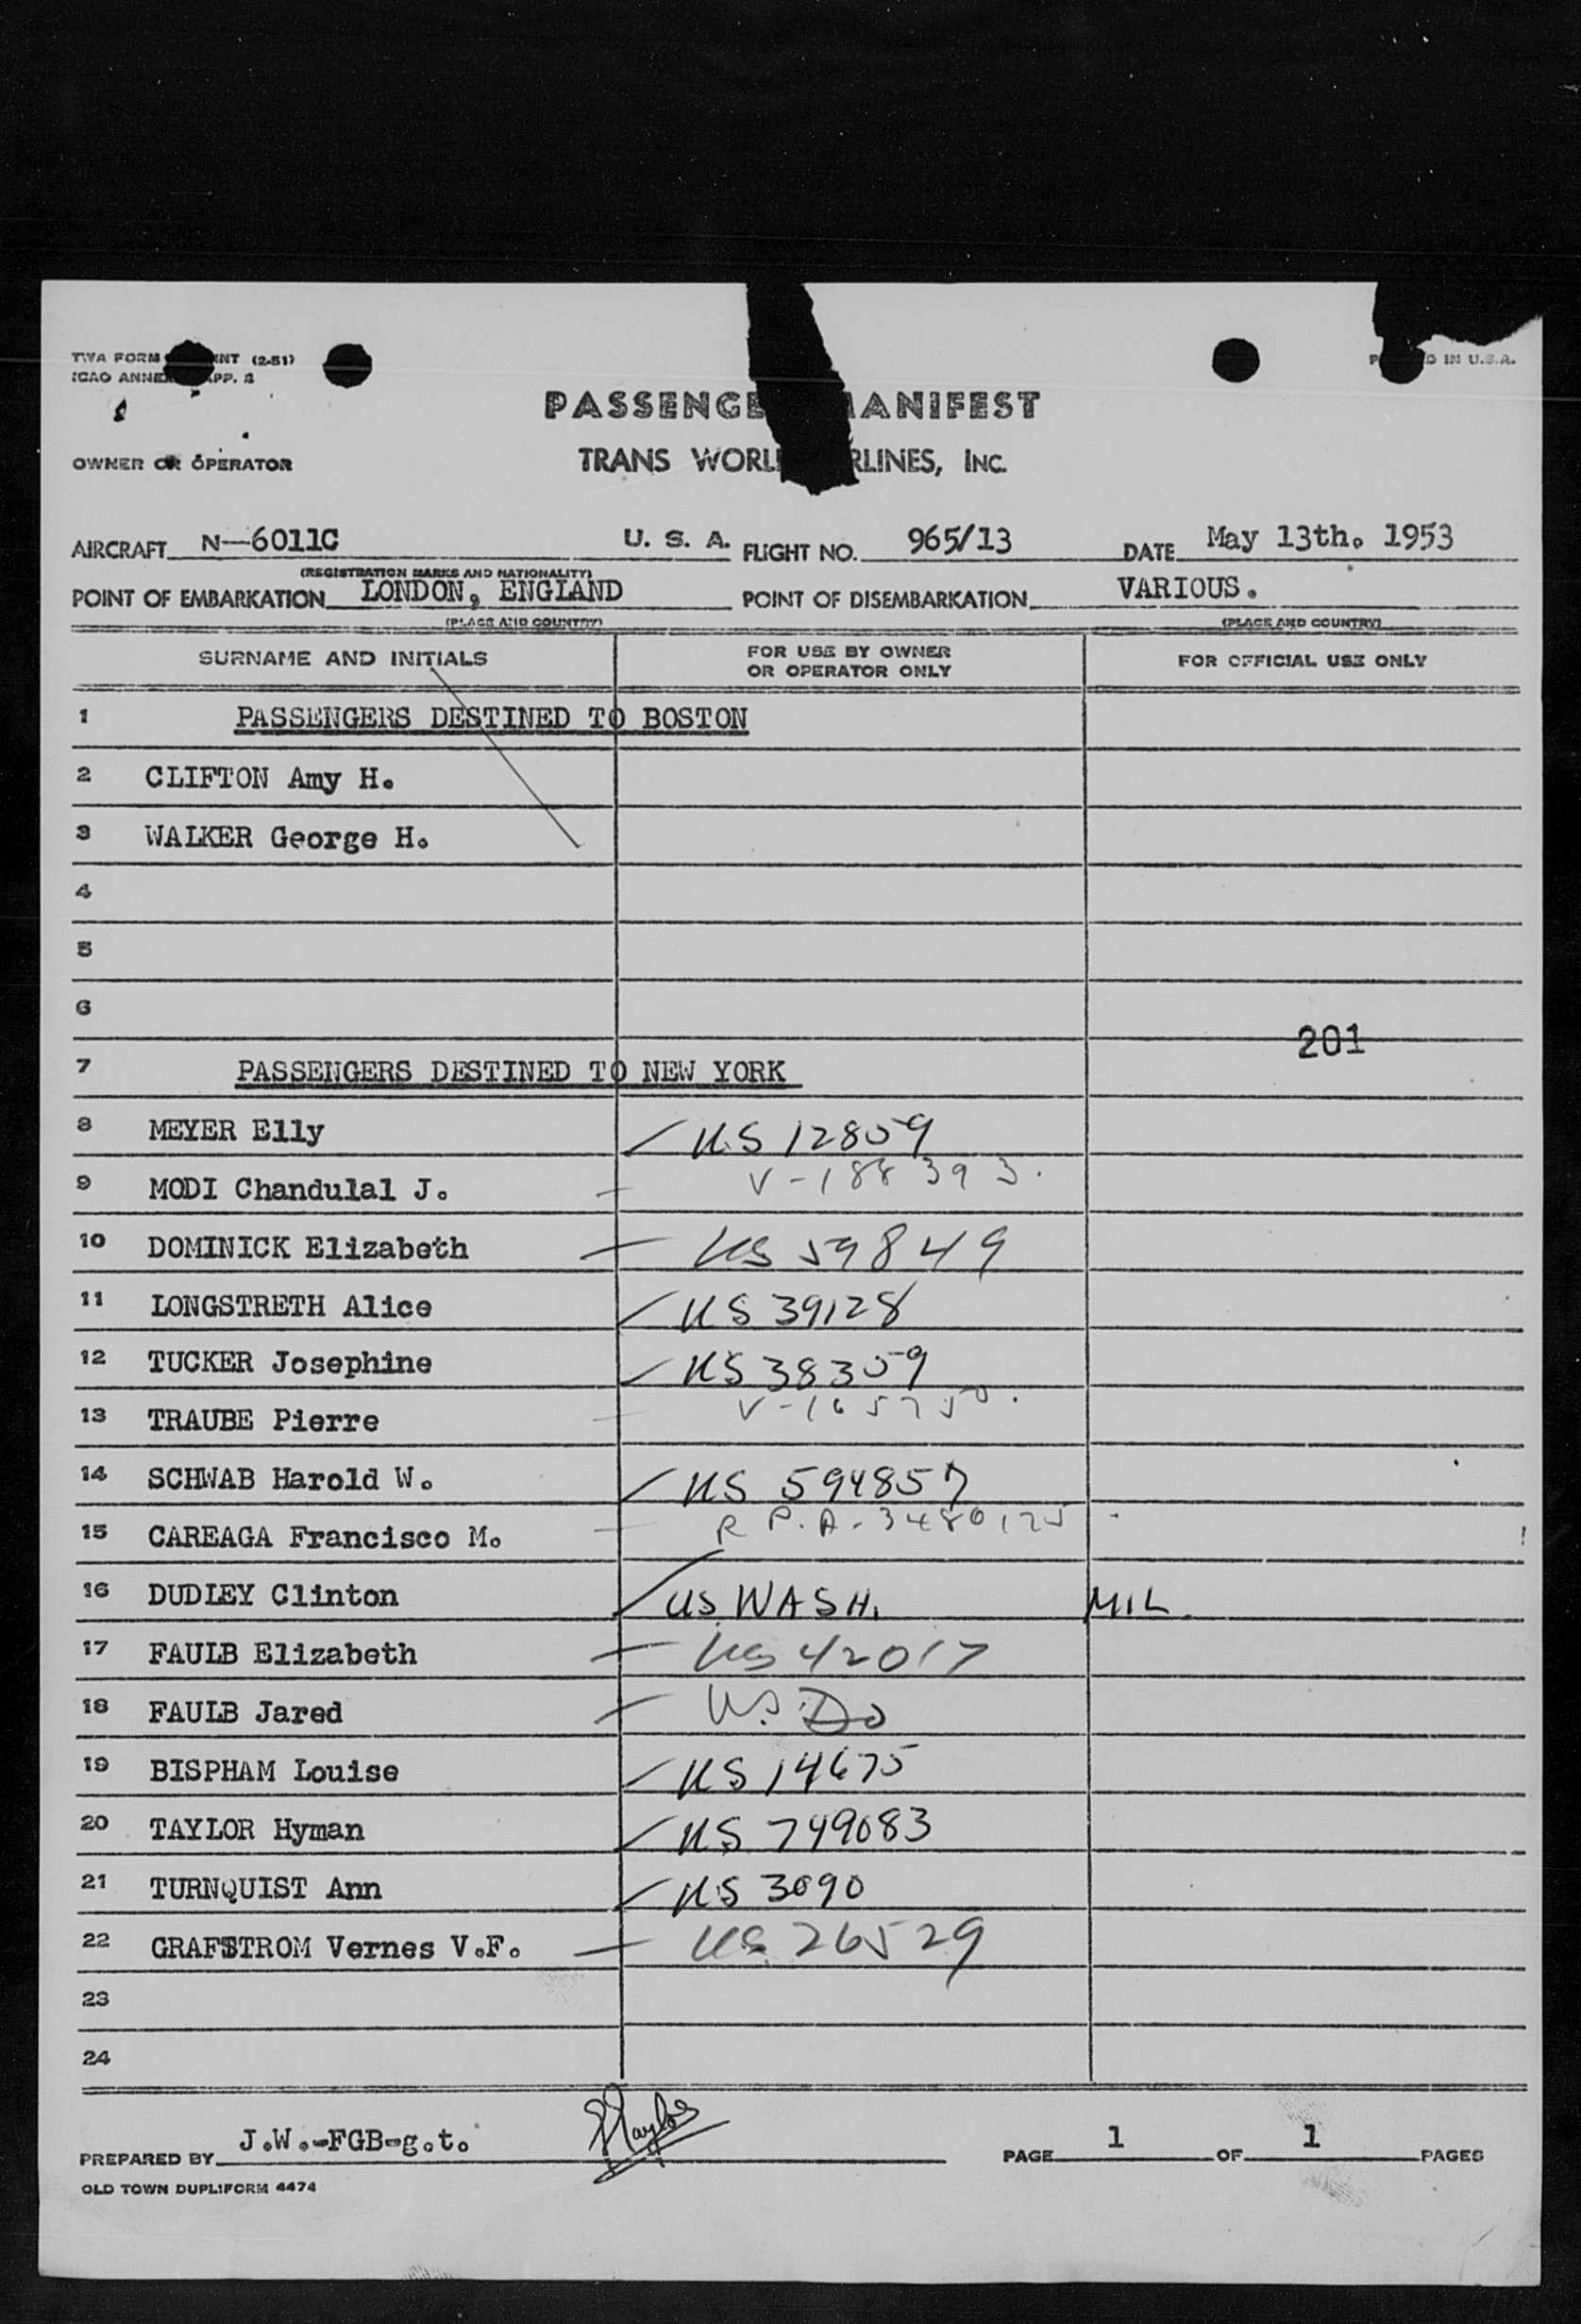 TWA FORM INT (2-51)
ICAO ANNEX APP. 2
IN U.S.A.
PASSENGE ANIFEST
OWNER OR OPERATOR
TRANS WORL RLINES, INC.
AIRCRAFT N-6011C U. S. A. FLIGHT NO. 965/13 DATE May 13th. 1953
(REGISTRATION MARKS AND NATIONALITY)
POINT OF EMBARKATION LONDON, ENGLAND POINT OF DISEMBARKATION VARIOUS.
(PLACE AND COUNTRY) (PLACE AND COUNTRY)
SURNAME AND INITIALS FOR USE BY OWNER OR OPERATOR ONLY FOR OFFICIAL USE ONLY
1 PASSENGERS DESTINED TO BOSTON
2 CLIFTON Amy H.
3 WALKER George H.
4
5
6
201
7 PASSENGERS DESTINED TO NEW YORK
8 MEYER Elly US 12859
9 MODI Chandulal J. V-188393.
10 DOMINICK Elizabeth US 59849
11 LONGSTRETH Alice US 39128
12 TUCKER Josephine US 38359
13 TRAUBE Pierre
14 SCHWAB Harold W. US 594857
15 CAREAGA Francisco M. R P.A-3480125
16 DUDLEY Clinton US WASH. MIL.
17 FAULB Elizabeth US 42017
18 FAULB Jared US. Do
19 BISPHAM Louise US 14675
20 TAYLOR Hyman US 749083
21 TURNQUIST Ann US 3090
22 GRAFSTROM Vernes V.F. US 26529
23
24
PREPARED BY J.W.-FGB-g.t. PAGE 1 OF 1 PAGES
OLD TOWN DUPLIFORM 4474